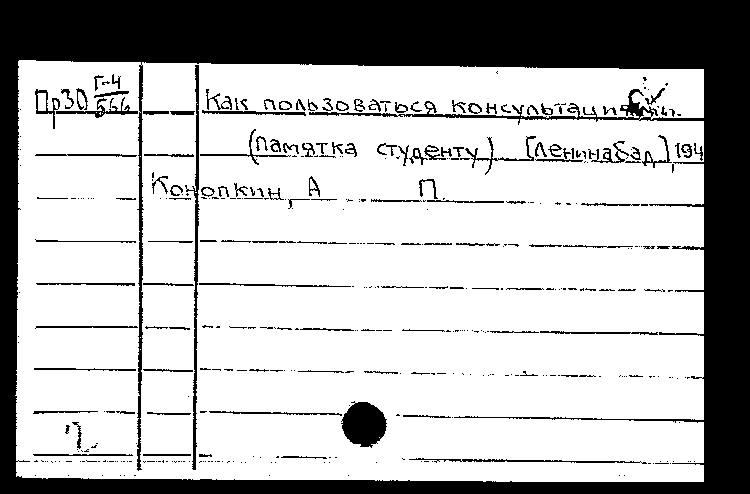 Пр30 Г-4/566 Как пользоваться консультациями.
(памятка студенту) [Ленинабад], 194
Конопкин, А П.
2